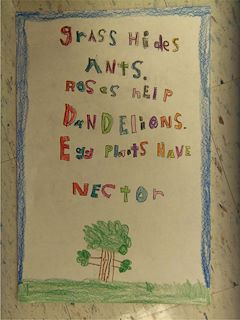 grass Hides
ANTS.
Roses help
DanDElions.
Egg plants HAVE
NECTOr